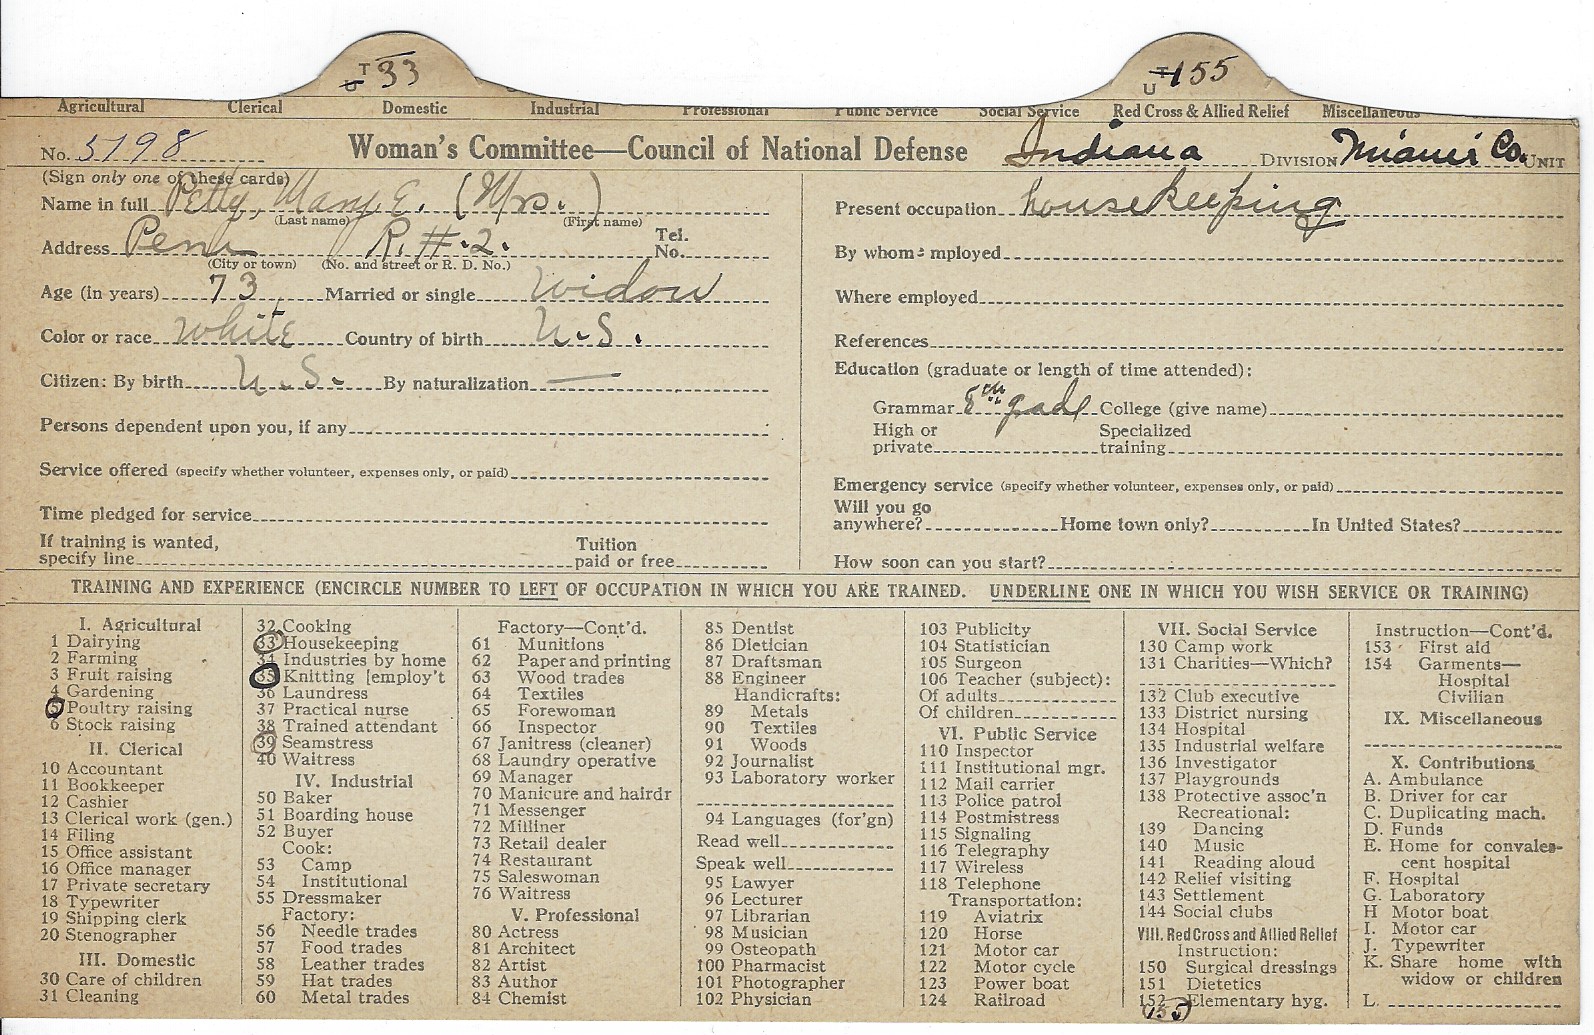 T
U 33
T
U 155
Agricultural Clerical Domestic Industrial Professional Public Service Social Service Red Cross & Allied Relief Miscellaneous
No. 5198 Woman's Committee—Council of National Defense Indiana DIVISION Miami Co. UNIT
(Sign only one of these cards)
Name in full Petty, Mary E. (Mrs.)
(Last name) (First name)
Address Peru R. #.2. Tel. No.
(City or town) (No. and street or R. D. No.)
Age (in years) 73 Married or single Widow
Color or race White Country of birth U.S.
Citizen: By birth U.S. By naturalization —
Persons dependent upon you, if any
Service offered (specify whether volunteer, expenses only, or paid)
Time pledged for service
If training is wanted,
specify line Tuition paid or free
Present occupation housekeeping
By whom employed
Where employed
References
Education (graduate or length of time attended):
Grammar 8th grade College (give name)
High or private Specialized training
Emergency service (specify whether volunteer, expenses only, or paid)
Will you go
anywhere? Home town only? In United States?
How soon can you start?
TRAINING AND EXPERIENCE (ENCIRCLE NUMBER TO LEFT OF OCCUPATION IN WHICH YOU ARE TRAINED. UNDERLINE ONE IN WHICH YOU WISH SERVICE OR TRAINING)
I. Agricultural
1 Dairying
2 Farming
3 Fruit raising
4 Gardening
5 Poultry raising
6 Stock raising
II. Clerical
10 Accountant
11 Bookkeeper
12 Cashier
13 Clerical work (gen.)
14 Filing
15 Office assistant
16 Office manager
17 Private secretary
18 Typewriter
19 Shipping clerk
20 Stenographer
III. Domestic
30 Care of children
31 Cleaning
32 Cooking
33 Housekeeping
34 Industries by home
35 Knitting [employ't
36 Laundress
37 Practical nurse
38 Trained attendant
39 Seamstress
40 Waitress
IV. Industrial
50 Baker
51 Boarding house
52 Buyer
Cook:
53 Camp
54 Institutional
55 Dressmaker
Factory:
56 Needle trades
57 Food trades
58 Leather trades
59 Hat trades
60 Metal trades
Factory—Cont'd.
61 Munitions
62 Paper and printing
63 Wood trades
64 Textiles
65 Forewoman
66 Inspector
67 Janitress (cleaner)
68 Laundry operative
69 Manager
70 Manicure and hairdr
71 Messenger
72 Milliner
73 Retail dealer
74 Restaurant
75 Saleswoman
76 Waitress
V. Professional
80 Actress
81 Architect
82 Artist
83 Author
84 Chemist
85 Dentist
86 Dietician
87 Draftsman
88 Engineer
Handicrafts:
89 Metals
90 Textiles
91 Woods
92 Journalist
93 Laboratory worker
94 Languages (for'gn)
Read well
Speak well
95 Lawyer
96 Lecturer
97 Librarian
98 Musician
99 Osteopath
100 Pharmacist
101 Photographer
102 Physician
103 Publicity
104 Statistician
105 Surgeon
106 Teacher (subject):
Of adults
Of children
VI. Public Service
110 Inspector
111 Institutional mgr.
112 Mail carrier
113 Police patrol
114 Postmistress
115 Signaling
116 Telegraphy
117 Wireless
118 Telephone
Transportation:
119 Aviatrix
120 Horse
121 Motor car
122 Motor cycle
123 Power boat
124 Railroad
VII. Social Service
130 Camp work
131 Charities—Which?
132 Club executive
133 District nursing
134 Hospital
135 Industrial welfare
136 Investigator
137 Playgrounds
138 Protective assoc'n
Recreational:
139 Dancing
140 Music
141 Reading aloud
142 Relief visiting
143 Settlement
144 Social clubs
VIII. Red Cross and Allied Relief
Instruction:
150 Surgical dressings
151 Dietetics
152 Elementary hyg.
155
Instruction—Cont'd.
153 First aid
154 Garments—
Hospital
Civilian
IX. Miscellaneous
X. Contributions
A. Ambulance
B. Driver for car
C. Duplicating mach.
D. Funds
E. Home for convales-
cent hospital
F. Hospital
G. Laboratory
H Motor boat
I. Motor car
J. Typewriter
K. Share home with
widow or children
L.